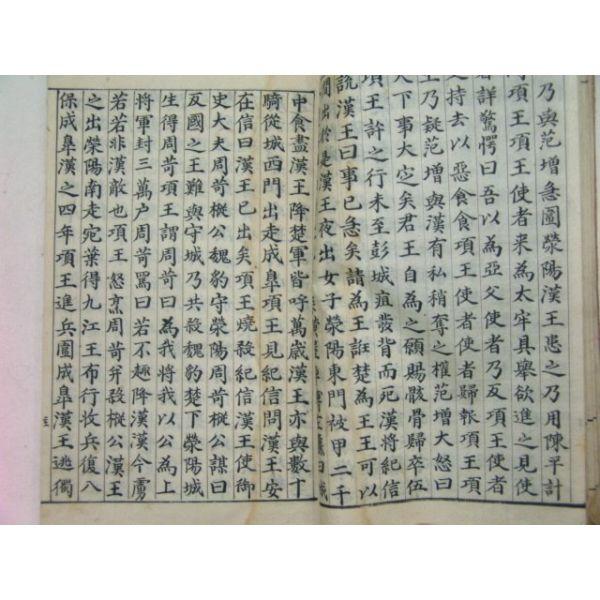 乃與范增急圍滎陽漢王患之乃用陳平計
項王使者来為太牢具舉欲進之見使
者詳驚愕曰吾以為亞父使者乃反項王使者
持去以惡食食項王使者使者歸報項王項
王乃疑范增與漢有私稍奪之權范增大怒曰
天下事大定矣君王自為之願賜骸骨歸卒伍
項王許之行未至彭城疽發背而死漢將紀信
說漢王曰事已急矣請為王誑楚為王王可以
間出於是漢王夜出女子滎陽東門被甲二千
曰城
中食盡漢王降楚軍皆呼萬歲漢王亦與數十
騎從城西門出走成皐項王見紀信問漢王安
在信曰漢王已出矣項王燒殺紀信漢王使御
史大夫周苛樅公魏豹守滎陽周苛樅公謀曰
反國之王難與守城乃共殺魏豹楚下滎陽城
生得周苛項王謂周苛曰為我將我以公為上
將軍封三萬户周苛罵曰若不趣降漢漢今虜
若若非漢敵也項王怒烹周苛并殺樅公漢王
之出滎陽南走宛葉得九江王布行收兵復入
保成皐漢之四年項王進兵圍成皐漢王逃獨